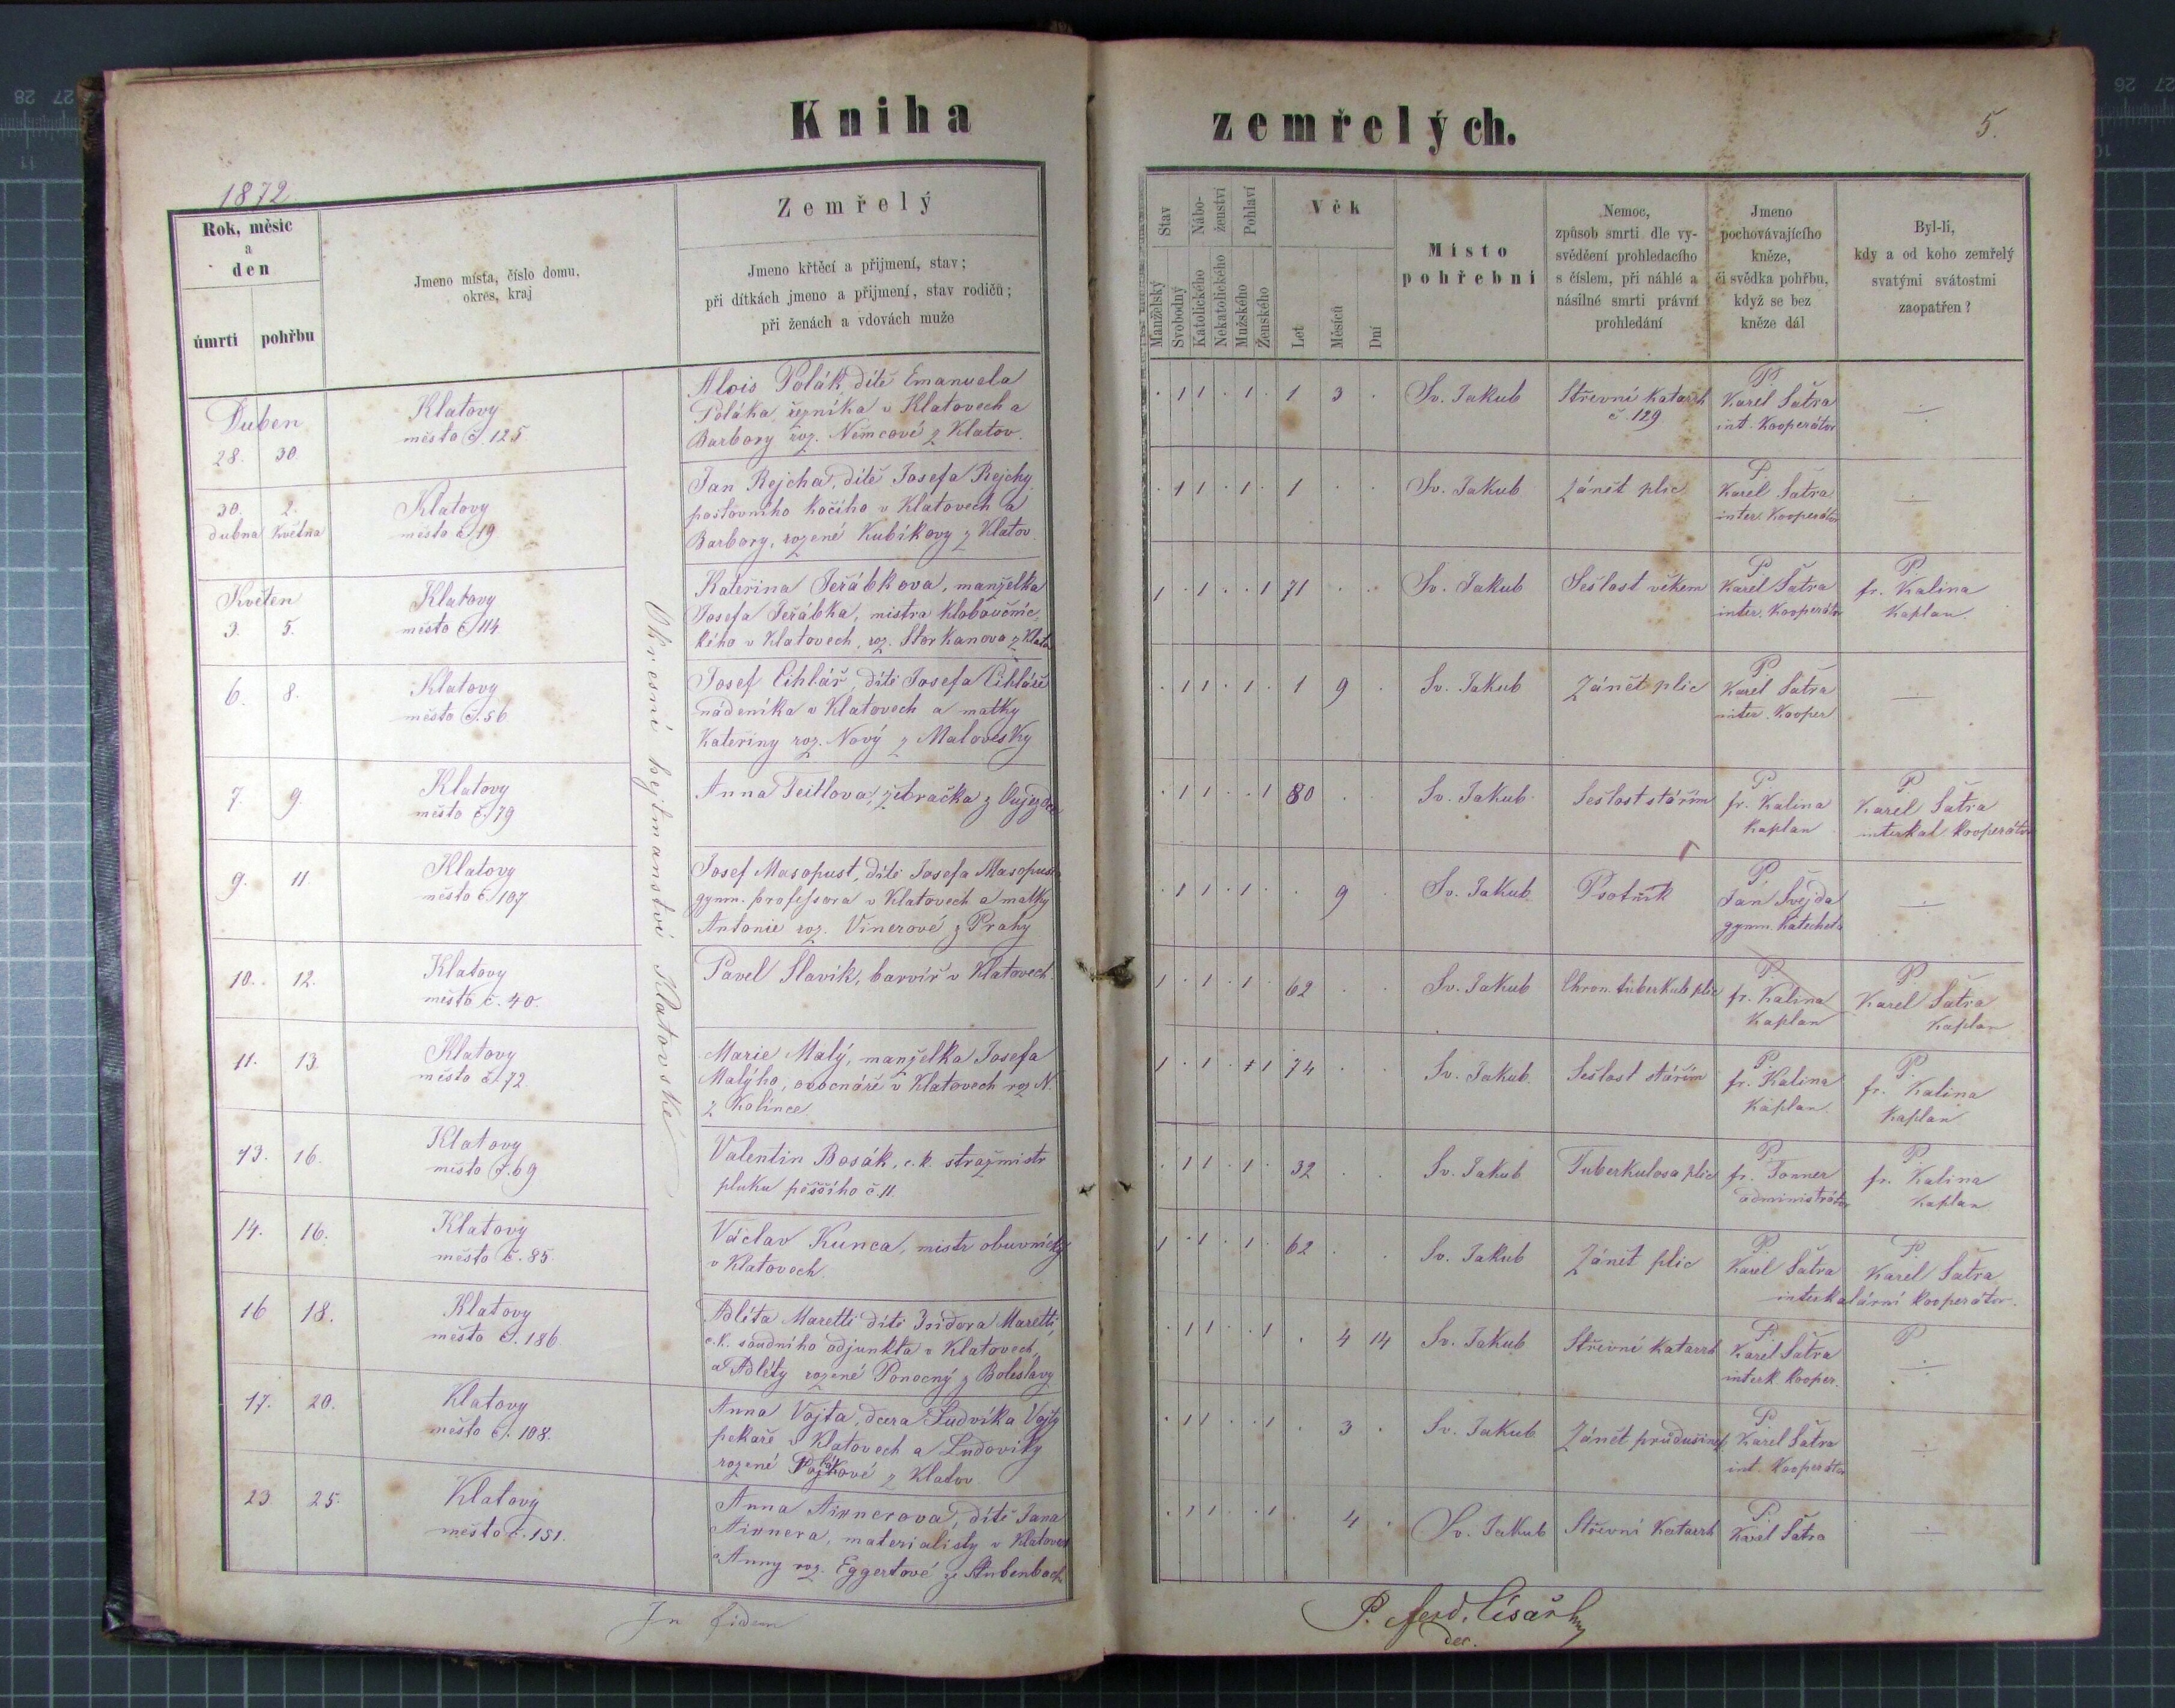 Kniha zemřelých.
5.
1872.
Rok, měsíc
a
den
úmrtí pohřbu
Jmeno místa, číslo domu,
okres, kraj
Zemřelý
Jmeno křtěcí a přijmení, stav;
při dítkách jmeno a přijmení, stav rodičů;
při ženách a vdovách muže
Stav
Manželský
Svobodný
Nábo-
ženství
Katolického
Nekatolického
Pohlaví
Mužského
Ženského
Věk
Let
Měsíců
Dní
Místo
pohřební
Nemoc,
způsob smrti dle vy-
svědčení prohledacího
s číslem, při náhlé a
násilné smrti právní
prohledání
Jmeno
pochovávajícího
kněze,
či svědka pohřbu,
když se bez
kněze dál
Byl-li,
kdy a od koho zemřelý
svatými svátostmi
zaopatřen?
Okresní hejtmanství Klatovské
Duben
28. 30.
Klatovy
město č. 125
Alois Polák dítě Emanuela
Poláka řezníka v Klatovech a
Barbory roz. Němcové z Klatov.
. 1 1 . 1 . 1 3 .
Sv. Jakub
Střevní katarrh
č. 129
P.
Karel Šatra
int. Kooperátor
30. 2.
dubna Května
Klatovy
město č. 19
Jan Rejcha, dítě Josefa Rejchy
poštovního kočího v Klatovech a
Barbory, rozené Kubíkovy z Klatov
. 1 1 . 1 . 1 . .
Sv. Jakub
Zánět plic
P.
Karel Šatra
inter. Kooperátor
Květen
3. 5.
Klatovy
město č. 114
Kateřina Jeřábkova, manželka
Josefa Jeřábka, mistra kloboučnic-
kého v Klatovech, roz. Storkanova z Klatov
1 . 1 . . 1 71 . .
Sv. Jakub
Sešlost věkem
P.
Karel Šatra
inter. Kooperátor
P.
fr. Kalina
Kaplan.
6. 8.
Klatovy
město č. 56
Josef Cihlář, dítě Josefa Cihláře
nádeníka v Klatovech a matky
Kateřiny roz. Nový z Malovesky
. 1 1 . 1 . 1 9 .
Sv. Jakub
Zánět plic
P.
Karel Šatra
inter. Kooper
7. 9.
Klatovy
město č. 79
Anna Teitlova, žebračka z Oujezdce
. 1 1 . . 1 80 .
Sv. Jakub
Sešlost stářím
P.
fr. Kalina
Kaplan
P.
Karel Šatra
interkal kooperátor
9. 11.
Klatovy
město č. 107
Josef Masopust, dítě Josefa Masopusta
gymn. professora v Klatovech a matky
Antonie roz. Vinerové z Prahy
. 1 1 . 1 . . 9
Sv. Jakub
Psotník
P.
Jan Švejda
gymn. Katecheta
10. 12.
Klatovy
město č. 40.
Pavel Slavík, barvíř v Klatovech.
1 . 1 . 1 . 62 . .
Sv. Jakub
Chron. tuberkul. plic
P.
fr. Kalina
Kaplan
P.
Karel Šatra
Kaplan
11. 13.
Klatovy
město č. 72.
Marie Malý, manželka Josefa
Malýho, ovocnáře v Klatovech roz. N.
z Kolince
1 . 1 . 1 1 74 . .
Sv. Jakub.
Sešlost stářím
P.
fr. Kalina
Kaplan.
P.
fr. Kalina
Kaplan
13. 16.
Klatovy
město č. 69
Valentin Bosák, c. k. strážmistr
pluku pěšího č. 11.
. 1 1 . 1 . 32 . .
Sv. Jakub
Tuberkulosa plic
P.
fr. Tonner
administrátor
P.
fr. Kalina
Kaplan
14. 16.
Klatovy
město č. 85.
Václav Kunca, mistr obuvnický
v Klatovech.
1 . 1 . 1 . 62 . .
Sv. Jakub
Zánět plic
P.
Karel Šatra
P.
Karel Šatra
interkalární kooperátor.
16 18.
Klatovy
město č. 186.
Adléta Maretti dítě Isidora Maretti,
c. k. soudního adjunkta v Klatovech,
a Adléty rozené Ponocný z Boleslavy
. 1 1 . . 1 . 4 14
Sv. Jakub
Střevní katarrh
P.
Karel Šatra
interk. Kooper.
P
17. 20.
Klatovy
město č. 108.
Anna Vojta, dcera Ludvíka Vojty
pekaře v Klatovech a Ludoviky
rozené z Klatov
. 1 1 . . 1 . 3 .
Sv. Jakub
Zánět průdušinek
P.
Karel Šatra
int. Kooperátor
23 25.
Klatovy
město č. 151.
Anna Airnerova, dítě Jana
Airnera, materialisty v Klatovech
a Anny roz. Eggertové ze Stubenbach
. 1 1 . . 1 . 4 .
Sv. Jakub
Střevní Katarrh
P.
Karel Šatra
In fidem
P. Ferd. Císař